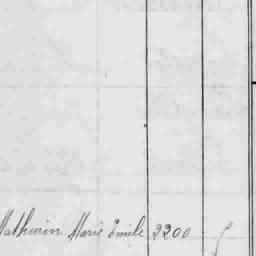 Mathurin Marie Emile 2200